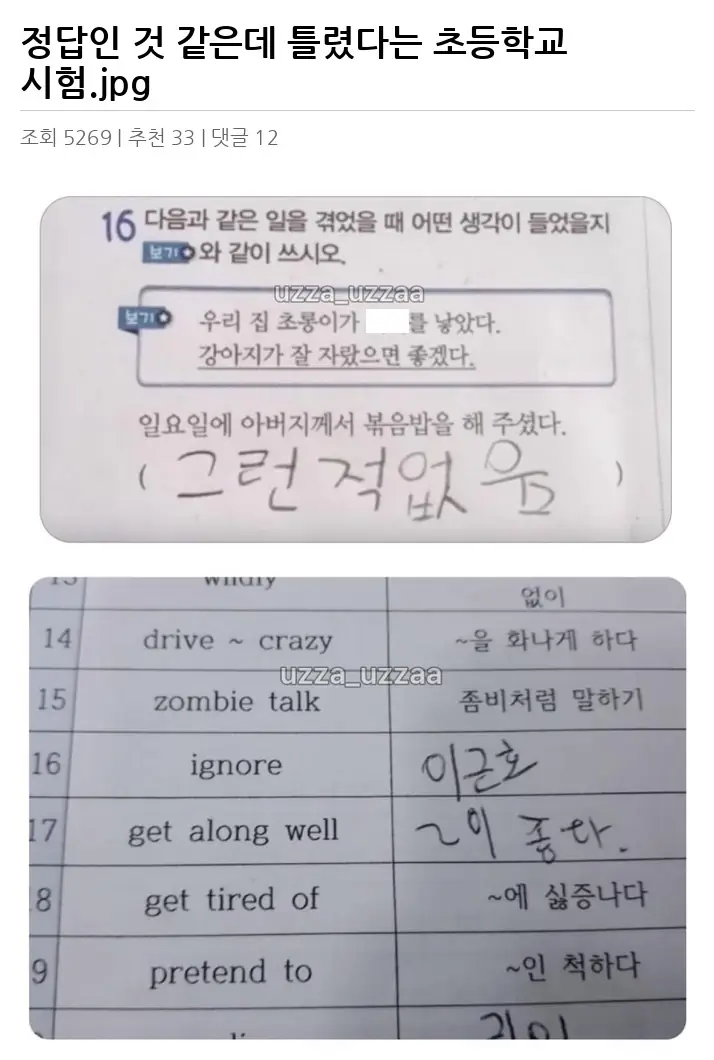 정답인 것 같은데 틀렸다는 초등학교
시험.jpg
조회 5269 | 추천 33 | 댓글 12
16 다음과 같은 일을 겪었을 때 어떤 생각이 들었을지
보기 와 같이 쓰시오.
uzza_uzzaa
보기 우리 집 초롱이가 를 낳았다.
강아지가 잘 자랐으면 좋겠다.
일요일에 아버지께서 볶음밥을 해 주셨다.
( 그런 적 없음 )
wildly 없이
14 drive ~ crazy ~을 화나게 하다
uzza_uzzaa
15 zombie talk 좀비처럼 말하기
16 ignore 이근호
17 get along well ~이 좋다.
8 get tired of ~에 싫증나다
9 pretend to ~인 척하다